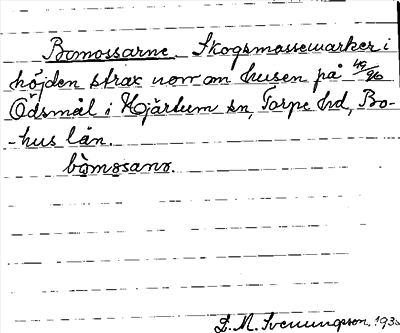 Bomossarne. Skogsmossemarker i
höjden strax norr om husen på 49/96
Ödsmål i Hjärtum sn, Torpe hd, Bo-
-hus län.
bòmosana.
S. M. Svenungsson. 193